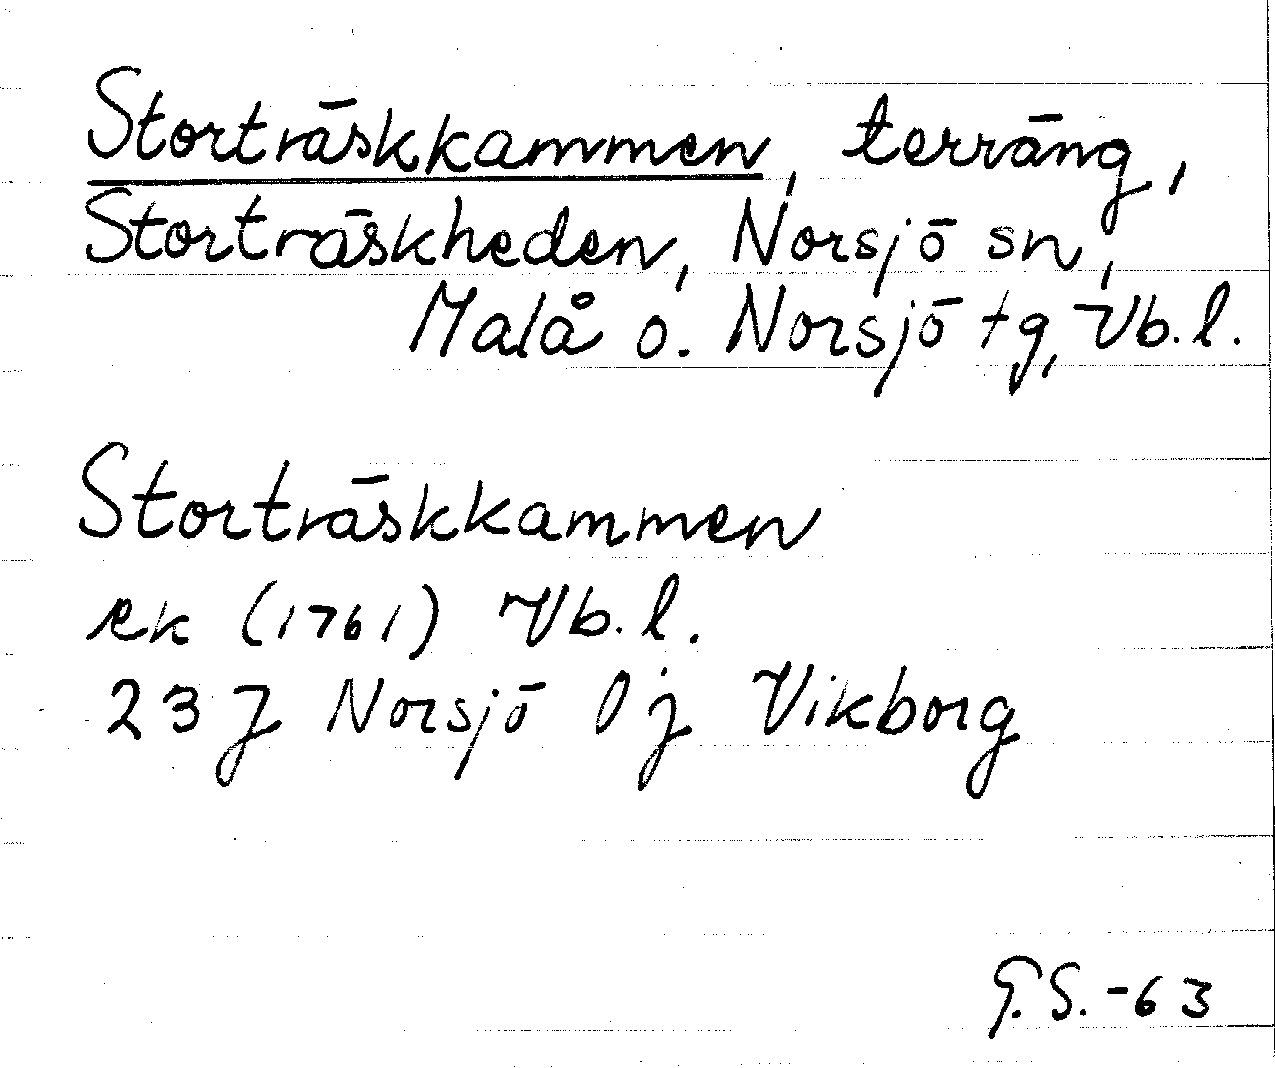 Storträskkammen, terräng,
Storträskheden, Norsjö sn,
Malå o. Norsjö tg, Vb.l.
Storträskkammen
ek (1761) Vb.l.
23 J Norsjö 0 j Vikborg
G.S.-63